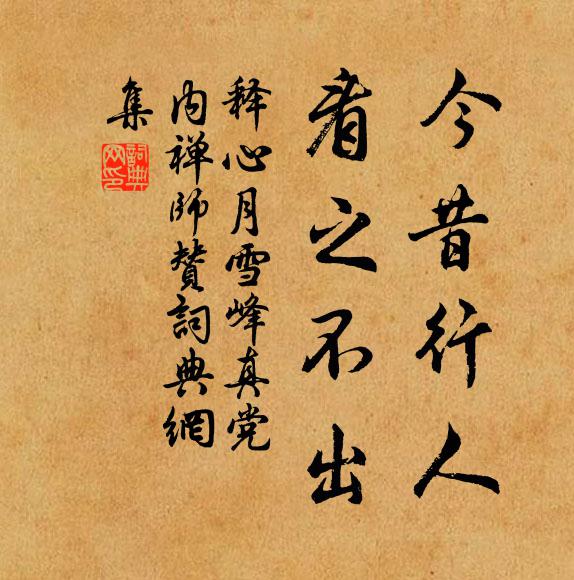 今昔行人
看之不出
释心月雪峰真党
内禅师赞词典網
集
詞典網印